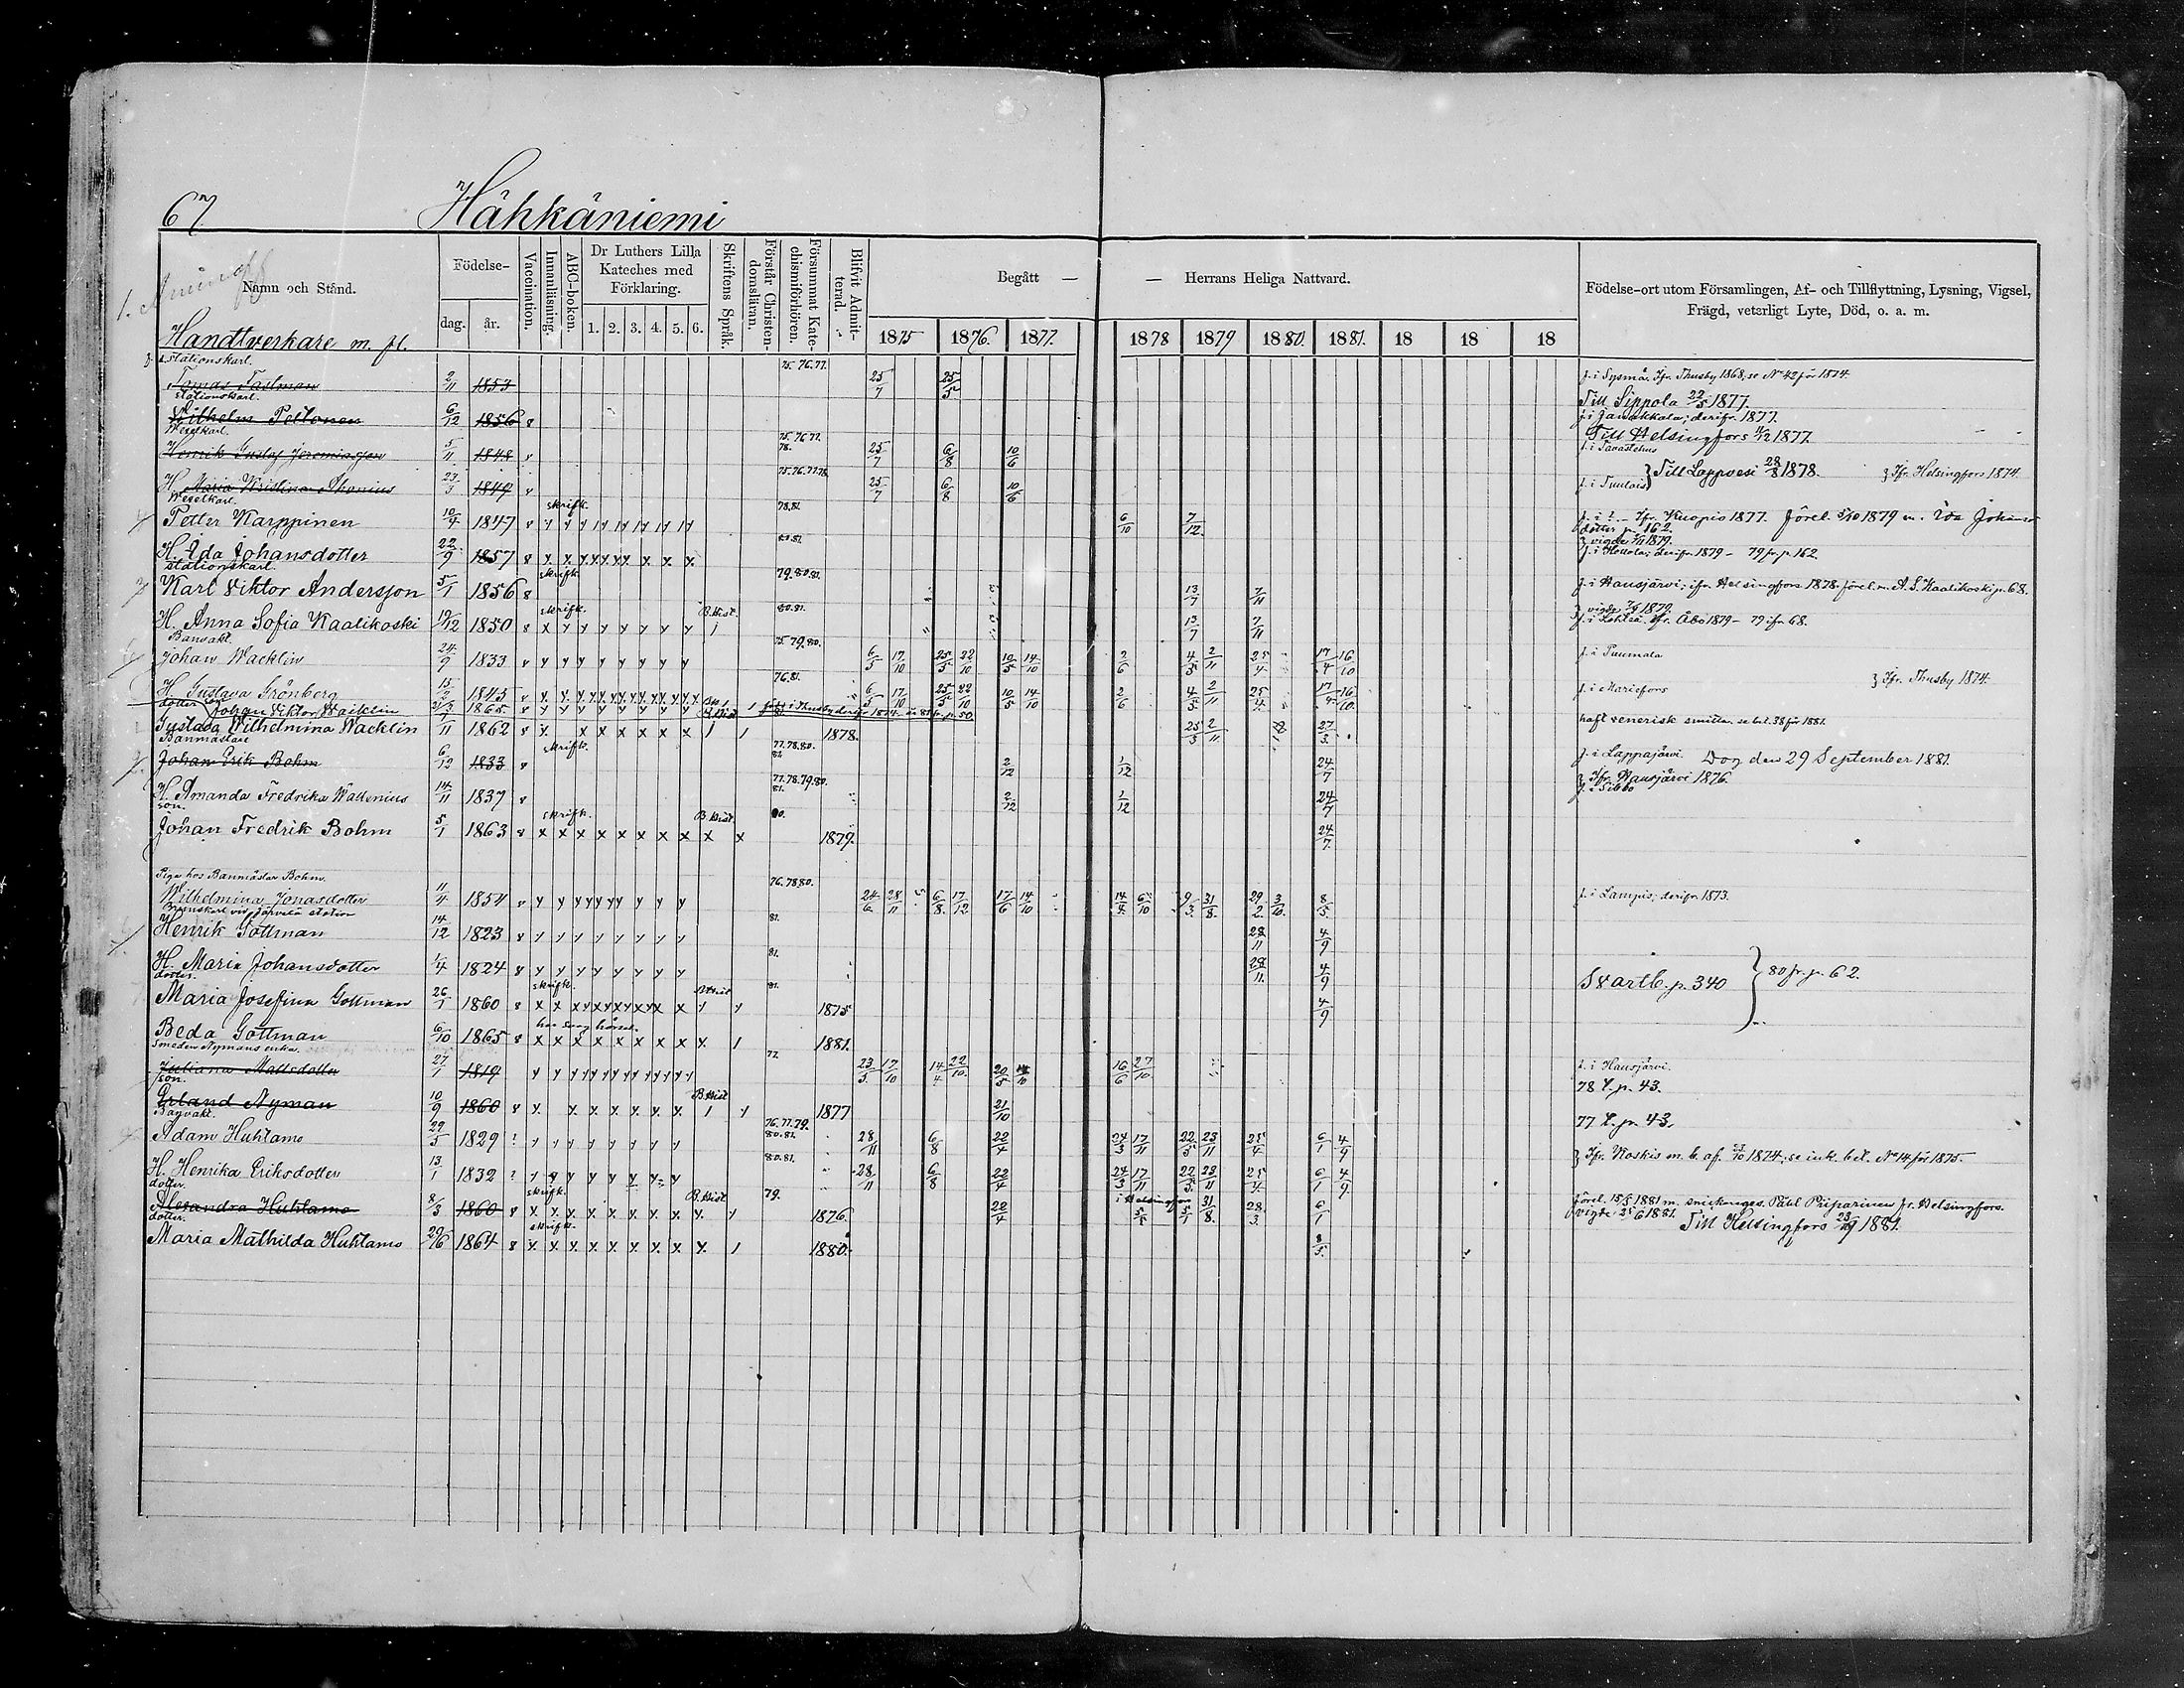 67.
Hähkäniemi
Namn och Stånd.
Födelse-
dag. år.
Vaccination.
Innanläsning.
ABC-boken.
Dr Luthers Lilla
Kateches med
Förklaring.
1. 2. 3. 4. 5. 6.
Skriftens Språk.
Förstår Christen-
domsläran.
Försummat Kate-
chismiförhören.
Blifvit Admit-
terad.
Begått —
— Herrans Heliga Nattvard.
1875 1876. 1877.
1878 1879 1880. 1881. 18 18 18
Födelse-ort utom Församlingen, Af- och Tillflyttning, Lysning, Vigsel,
Frägd, veterligt Lyte, Död, o. a. m.
Handtverkare m. fl.
stationskarl. 75. 76. 77.
Tomas Taslman 2/11 1853 25/7 25/5 f. i Sysmä. Ifr. Thusby 1868, se No 42 för 1874.
Till Sippola 22/5 1877.
stationskarl.
Wilhelm Peltonen 6/12 1856 f. i Janakkala; derifr. 1877.
Till Helsingfors 4/12 1877.
Wexelkarl. 75. 76 77. 78.
Henrik Gustaf Jeremiasson 5/11 1848 25/7 6/8 10/6 f. i Tavastehus
75. 76. 77. 78.
H. Maria Kristina 23/3 1849 25/7 6/8 10/6 f. i Tuulois } Till Lappvesi 28/8 1878. } Ifr. Helsingfors 1874.
Wexelkarl. skrifk. 78.81.
Petter Karppinen 10/4 1847 6/10 7/12. Ifr. Kuopio 1877. Förel. 5/10 1879 m. Ida Johans-
dotter p. 162.
vigde 1879.
H. Ida Johansdotter 22/9 1857 f. i Hollola; derifr. 1879 – 79 fr. p. 162.
stationskarl. skrifk. 79. 80. 81.
Karl Viktor Andersson 5/1 1856 13/7 7/11 f. i Hausjärvi; ifr. Helsingfors 1878. förel. m. A. S. Kaalikoski p. 68.
vigde 1879.
skrifk. B. Hist. 80. 81.
H. Anna Sofia Kaalikoski 19/12 1850 13/7 7/11 Ifr. Åbo 1879 – 79 ifr. 68.
Banvakt. 75 79. 80.
Johan Wacklin 24/9 1833 6/5 17/10 25/5 22/10 10/5 14/10 2/6 4/5 2/11 25/4 17/4 16/10 f. i Puumala
76. 81.
H. Gustava Grönberg 15/2 1843 6/5 17/10 25/5 22/10 10/5 14/10 2/6 4/5 2/11 25/4. 17/4 16/10. f. i Mariefors } Ifr. Thusby 1874.
son Johan Viktor Wacklin 1865
dotter
Gustava Wilhelmina Wacklin 1/11 1862 1878. 25/3 2/11 27/3. haft venerisk smitta. se bil. 38 för 1881.
Banmästare skrifk. 77. 78. 80.
Johan Erik Bohm 6/12 1833 2/12 1/12 24/7 f. i Lappajärvi. Dog den 29 September 1881.
77. 78. 79. 80. 81. } Ifr. Hausjärvi 1876.
H. Amanda Fredrika Wallenius 14/11 1837 2/12 1/12 24/7 f. i Sibbo
son. skrifk. B. Hist 80.
Johan Fredrik Bohm 5/1 1863 1879. 24/7.
Piga hos Banmästar Bohm. 76. 78 80.
Wilhelmina Jonasdotter 11/4 1854 24/6. 28/11 6/8. 17/12. 17/6 14/10 14/4. 6/10 9/3. 31/8. 29/2. 3/10. 8/5 f. i Lampis; derifr. 1873.
vid Järvelä station 81.
Henrik Gottman 14/12 1823 28/11 4/9
81.
H. Maria Johansdotter 1/4 1824 28/11. 4/9
dotter. skrifk. B Hist 81.
Maria Josefina Gottman 26/1 1860 1875 4/9 Svartb. p. 340 } 80 fr. p. 62.
har svag hörsel.
Beda Gottman 6/10 1865 1881.
Smeden Nymans enka. 77.
Juliana Mattsdotter 27/1 1819 23/5. 17/10 14/4 22/10. 20/5 14/10 16/6 27/10. f. i Hausjärvi.
78 t. p. 43.
son. B. Hist
Erland Nyman 10/9 1860 1877 21/10 77 t. p. 43.
Banvakt. 76. 77. 79. 80. 81.
Adam Huhtamo 29/5 1829 28/11 6/8 22/4 24/3 17/11 22/5 23/11 25/4 6/1 4/9
80. 81. } Ifr. Koskis m. b. af. 1874; se ink. bet. No 14 för 1875.
H. Henrika Eriksdotter 13/1 1832 28/11 6/8 22/4 24/3 17/11 22/5. 23/11 25/4. 6/1 4/9.
dotter. skrifk. B. Hist 79. i Helsingfors
Alexandra Huhtamo 8/3 1860 1876. 22/4 5/1 31/8. 28/3. 6/1 förel. 15/5 1881 m. snickareges. Paul Piiparinen fr. Helsingfors.
vigde 25/6 1881. Till Helsingfors 1881.
dotter. skrifk.
Maria Mathilda Huhtamo 29/6 1864 1880. 8/5.